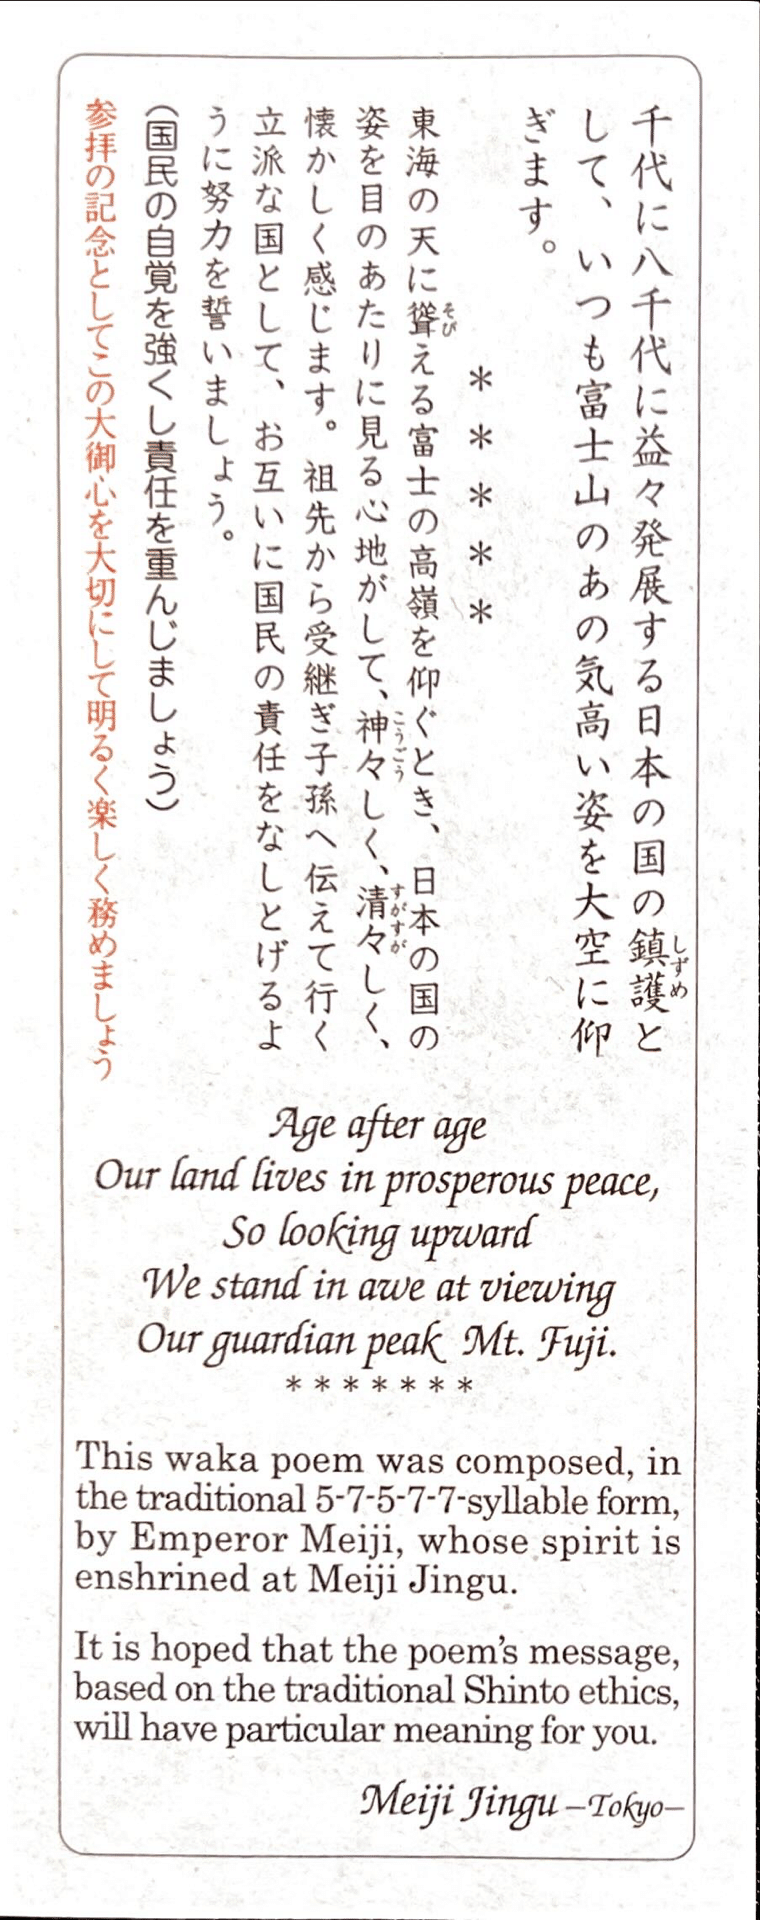 千代に八千代に益々発展する日本の国の鎮護と
しずめ
して、いつも富士山のあの気高い姿を大空に仰
ぎます。
＊＊＊＊＊
東海の天に聳える富士の高嶺を仰ぐとき、日本の国の
そび
姿を目のあたりに見る心地がして、神々しく、清々しく、
こうごう
すがすが
懐かしく感じます。祖先から受継ぎ子孫へ伝えて行く
立派な国として、お互いに国民の責任をなしとげるよ
うに努力を誓いましょう。
（国民の自覚を強くし責任を重んじましょう）
参拝の記念としてこの大御心を大切にして明るく楽しく務めましょう
Age after age
Our land lives in prosperous peace,
So looking upward
We stand in awe at viewing
Our guardian peak Mt. Fuji.
*******
This waka poem was composed, in
the traditional 5-7-5-7-7-syllable form,
by Emperor Meiji, whose spirit is
enshrined at Meiji Jingu.
It is hoped that the poem's message,
based on the traditional Shinto ethics,
will have particular meaning for you.
Meiji Jingu –Tokyo–